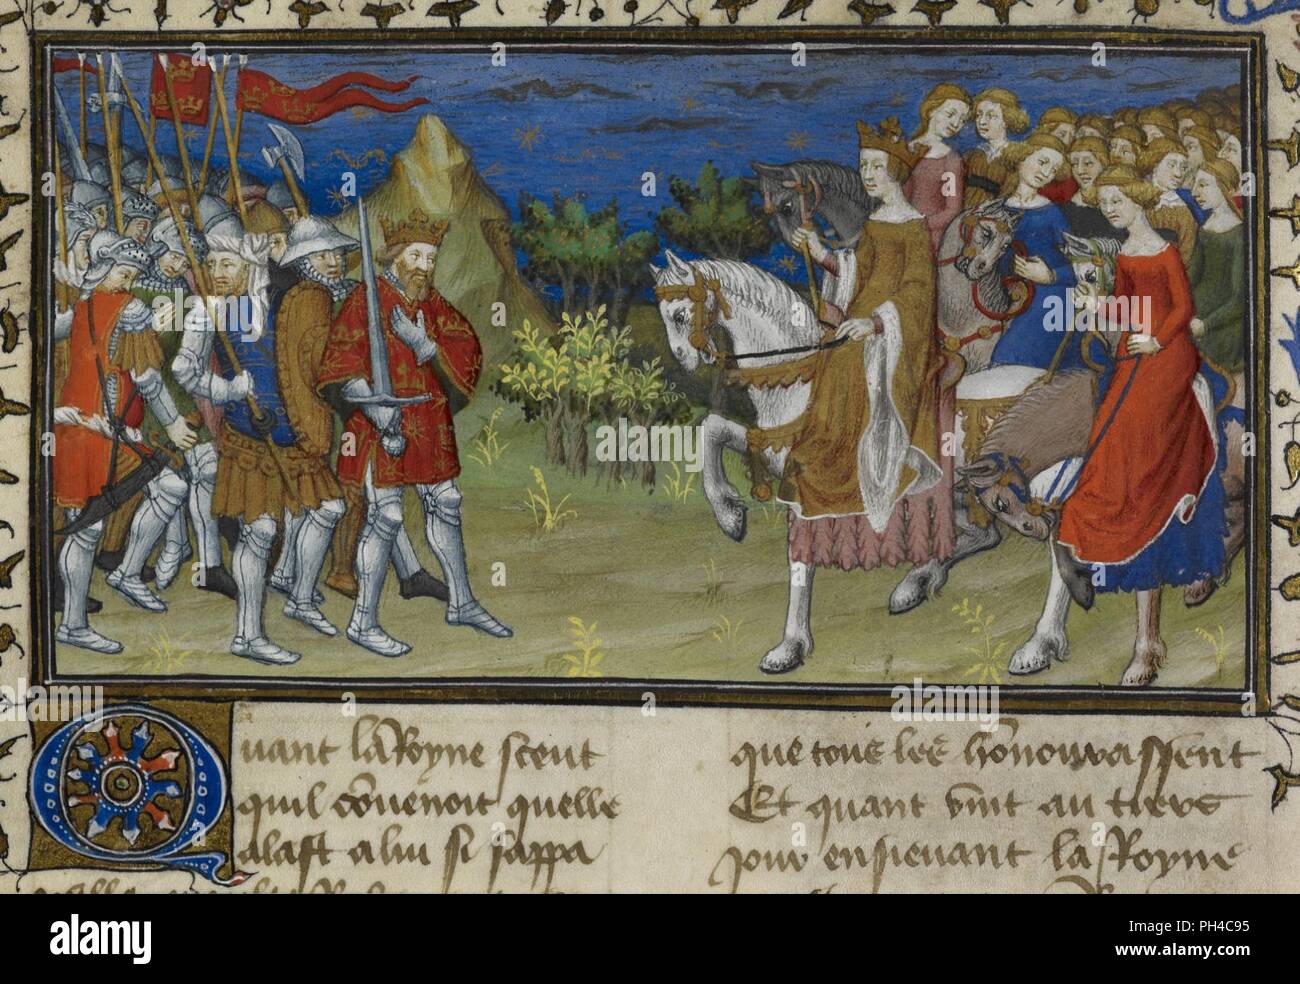 Quant la Royne scent
quil convenoit quelle
alast a lui si sappa
que tous les honnourassent
Et quant vint au tiers
jour ensieuvant la Royne
alamy
alamy
Image ID: PH4C95
www.alamy.com